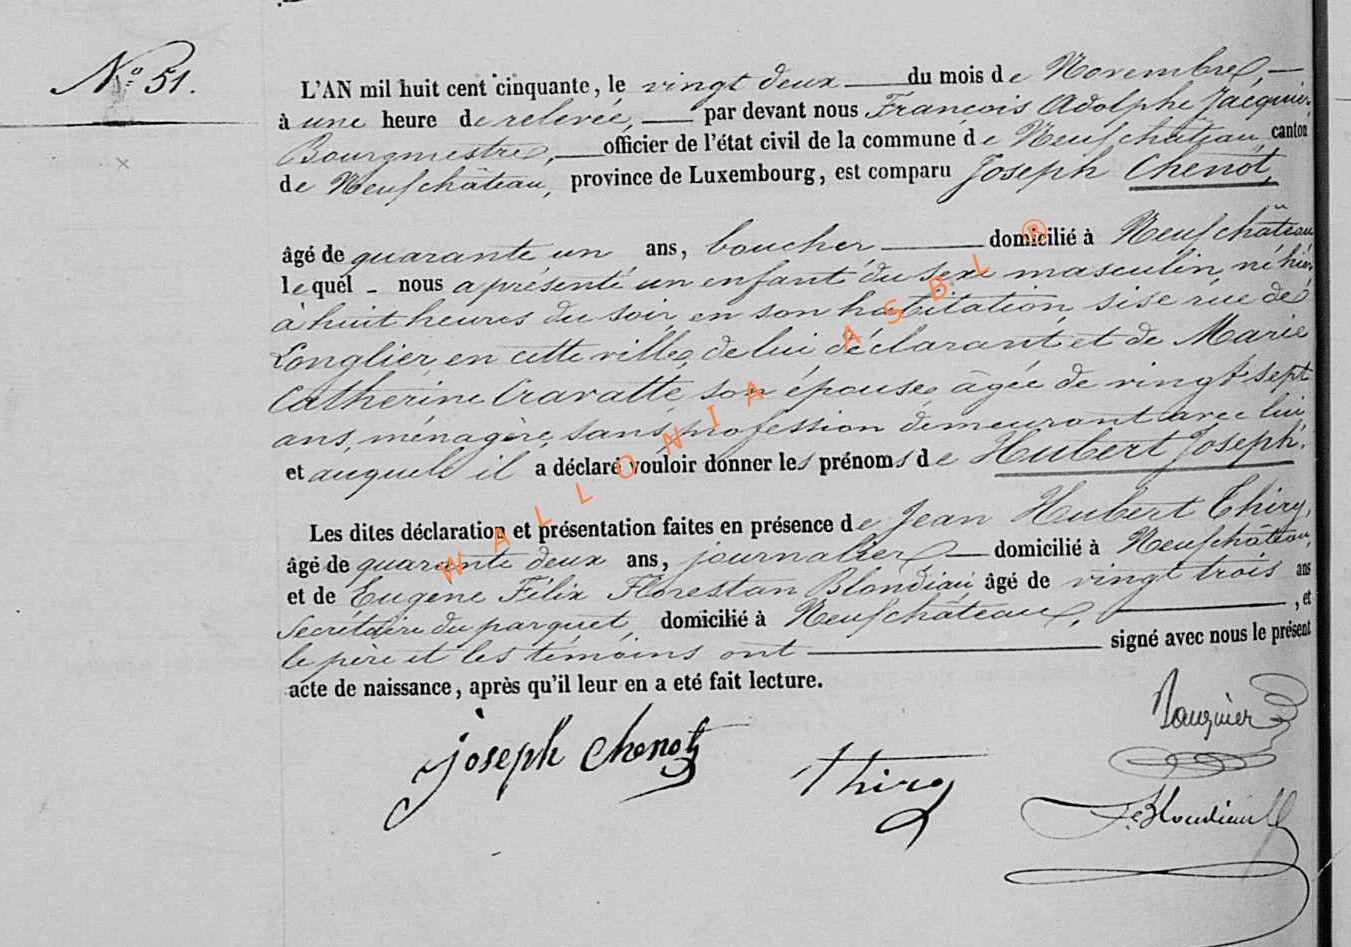 N.° 51.
L'AN mil huit cent cinquante, le vingt deux du mois de Novembre,
à une heure de relevée, par devant nous François Adolphe Jacquier
Bourgmestre, officier de l'état civil de la commune de Neufchâteau, canton
de Neufchâteau, province de Luxembourg, est comparu Joseph Chenot,
âgé de quarante un ans, boucher, domicilié à Neufchâteau
lequel nous a présenté un enfant du sexe masculin, né hier
à huit heures du soir en son habitation, sise rue de
Longlier, en cette ville, de lui déclarant et de Marie
Catherine Cravatte, son épouse, âgée de vingt sept
ans, ménagère, sans profession demeurant avec lui,
et auquel il a déclaré vouloir donner les prénoms de Hubert Joseph.
Les dites déclaration et présentation faites en présence de Jean Hubert Thiry,
âgé de quarante deux ans, journalier, domicilié à Neufchâteau,
et de Eugène Félix Florestan Blondiau, âgé de vingt trois ans
Secrétaire du parquet, domicilié à Neufchâteau, , et
le père et les témoins ont signé avec nous le présent
acte de naissance, après qu'il leur en a eté fait lecture.
Jacquier
Joseph Chenot
Thiry
F. Blondiau
WALLONIA ASBL ®